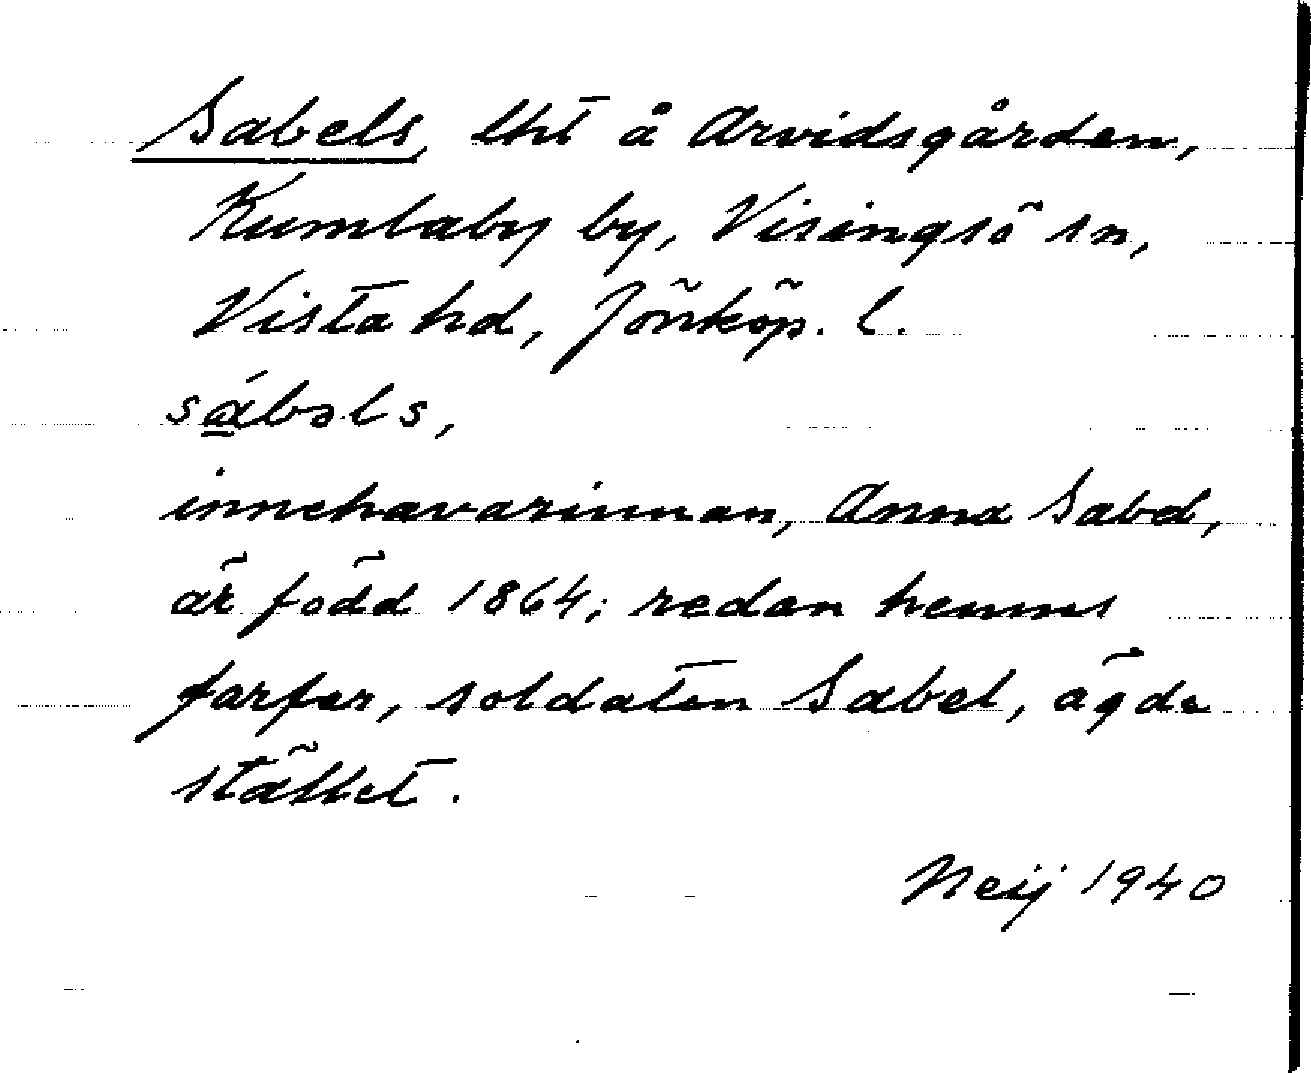 Sabels, lht å Arvidsgården,
Kumlaby by, Visingsö sn,
Vista hd, Jönköp. l.
sábəls,
innehavarinnan, Anna Sabel,
är född 1864; redan hennes
farfar, soldaten Sabel, ägde
stället.
Neij 1940